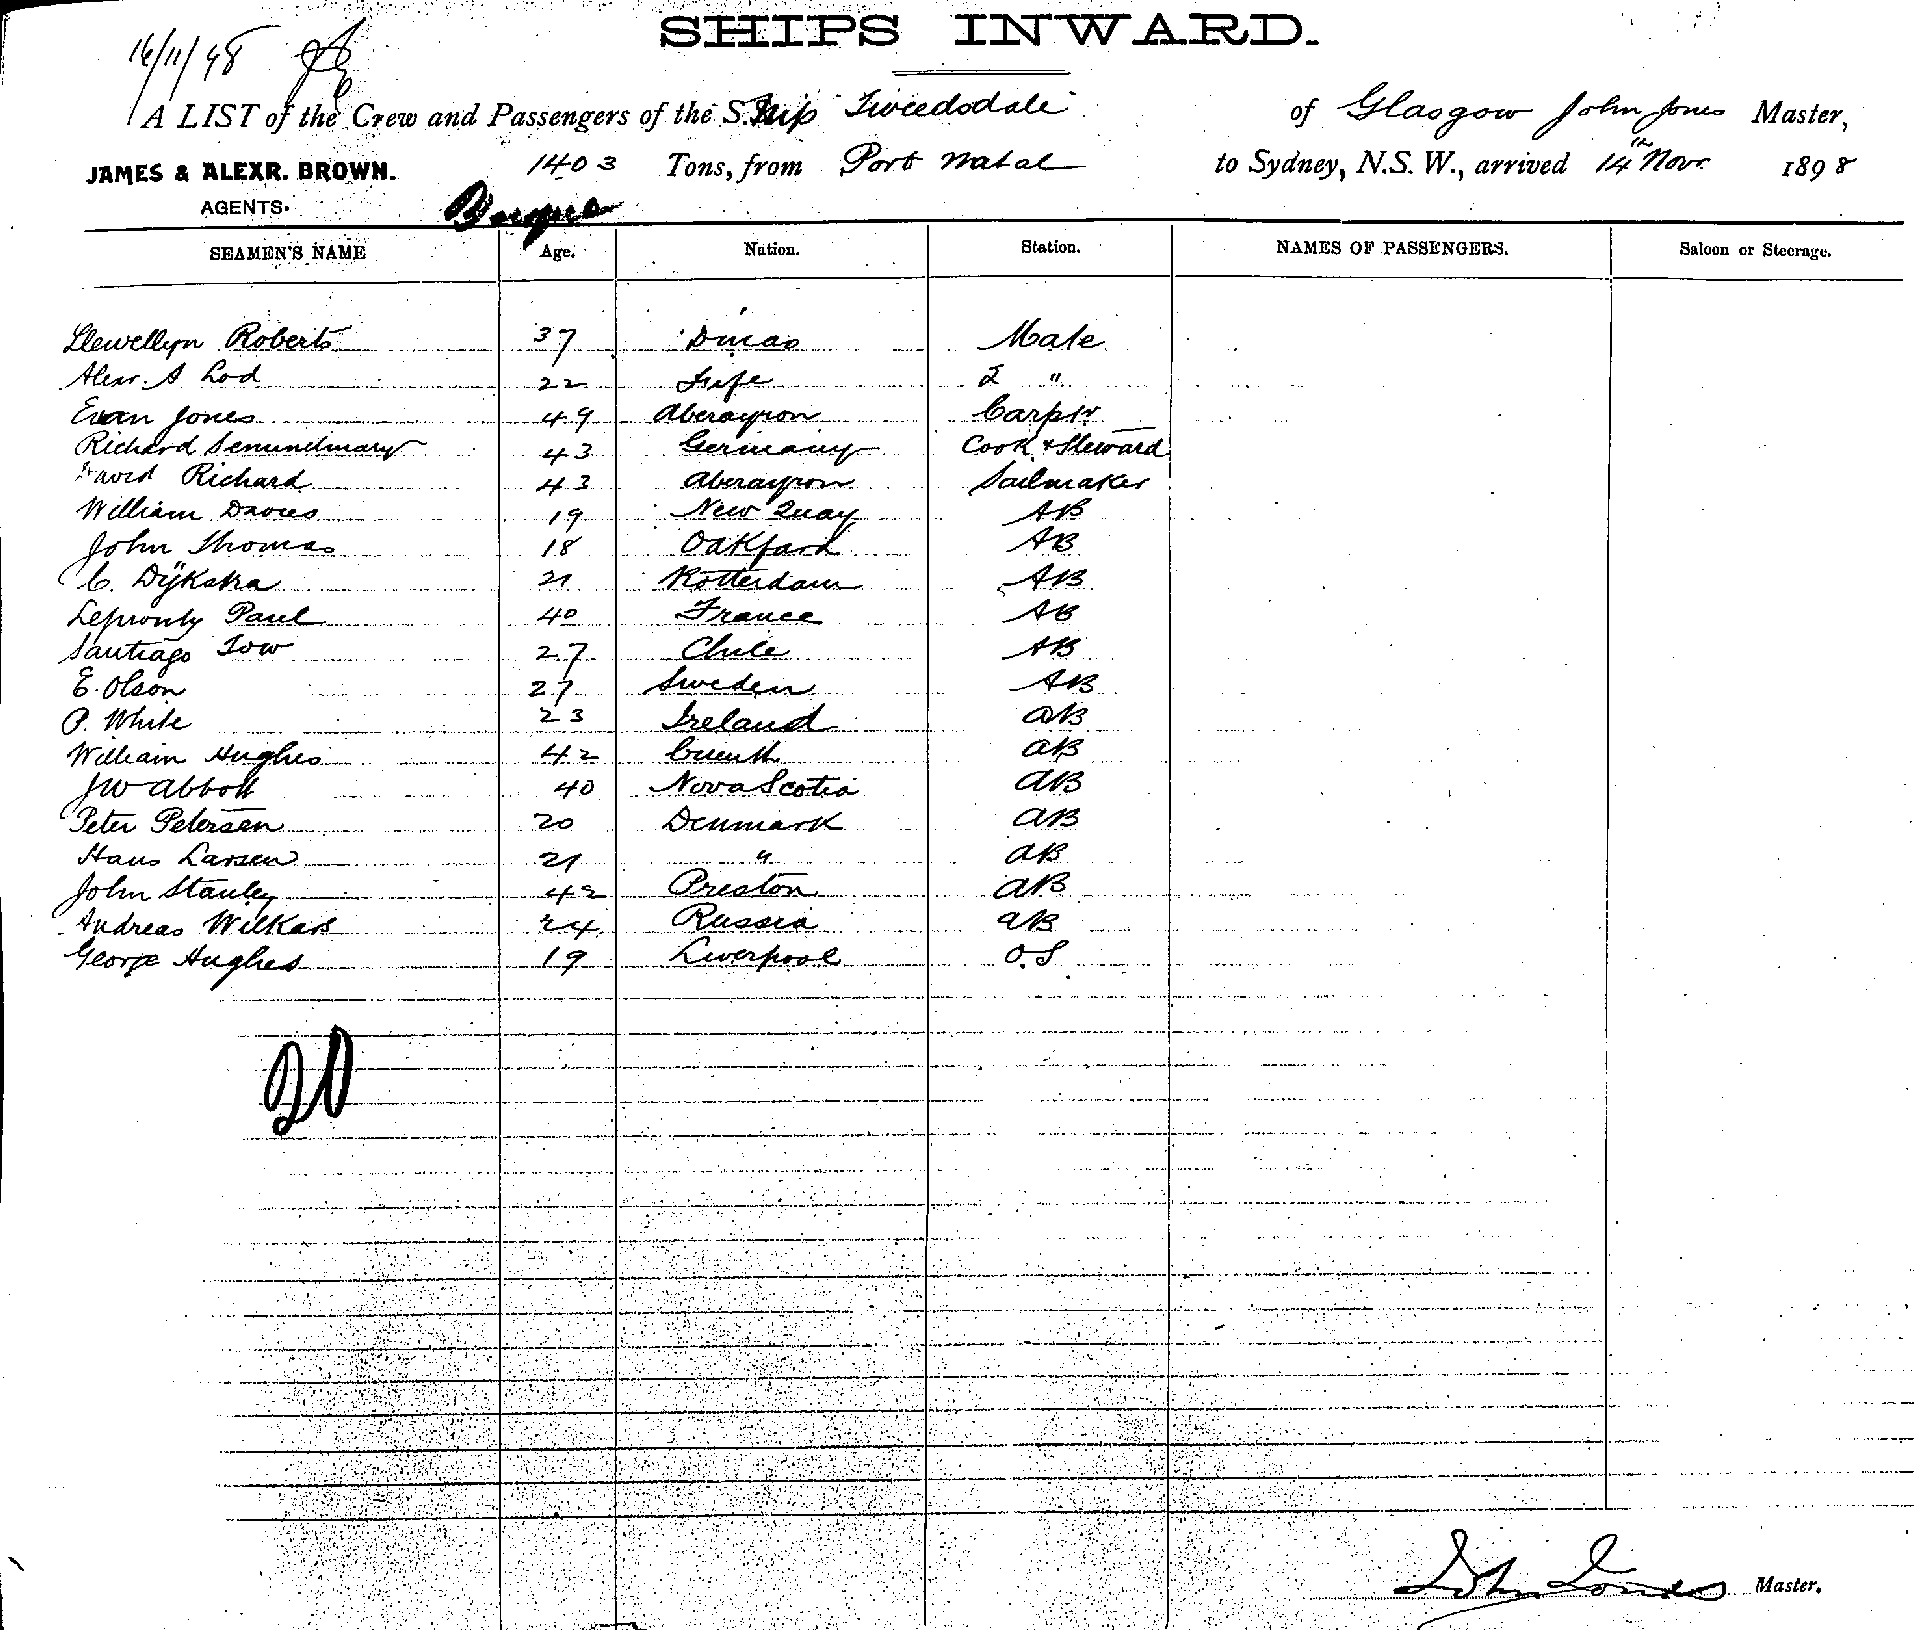 SHIPS INWARD.
16/11/98
A LIST of the Crew and Passengers of the S. Ship Tweedsdale of Glasgow John Jones Master,
JAMES & ALEXR. BROWN. 1403 Tons, from Port Natal to Sydney, N.S.W., arrived 14th Novr. 1898
AGENTS. Barque
SEAMEN'S NAME Age. Nation. Station. NAMES OF PASSENGERS. Saloon or Steerage.
Llewellyn Roberts 37 Dinas Mate
Alexr. A Lod 22 Fife 2 "
Evan Jones 49 Aberayron Carptr
Richard 43 Germany Cook & Steward
David Richard 43 Aberayron Sailmaker
William Davies 19 New Quay AB
John Thomas 18 Oakford AB
C. Dijkstra 21 Rotterdam AB
Paul 40 France AB
Santiago Tow 27 Chile AB
E. Olson 27 Sweden AB
P. White 23 Ireland AB
William Hughes 42 AB
JW Abbott 40 Nova Scotia AB
Peter Petersen 20 Denmark AB
Hans Larsen 21 " AB
John Stanley 42 Preston AB
Andreas Wilkas 24 Russia AB
George Hughes 19 Liverpool O.S
20
John Jones Master.